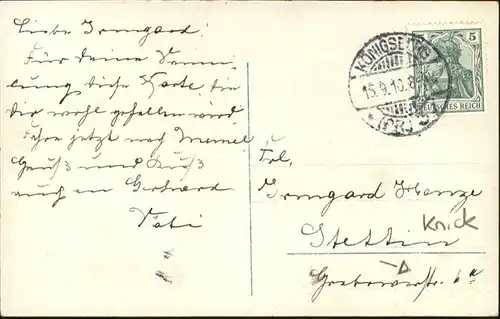 Liebe Irmgard!
Für deine Samm-
lung diese Karte, die
dir wohl gefallen wird
Fahre jetzt nach Memel
Gruß und Kuß
auch an Gerhard
Vati
KÖNIGSBERG
15.9.10.8
*(PR.)
5
DEUTSCHES REICH
Frl.
Irmgard
Stettin
Knick
Grabowerstr. 6a